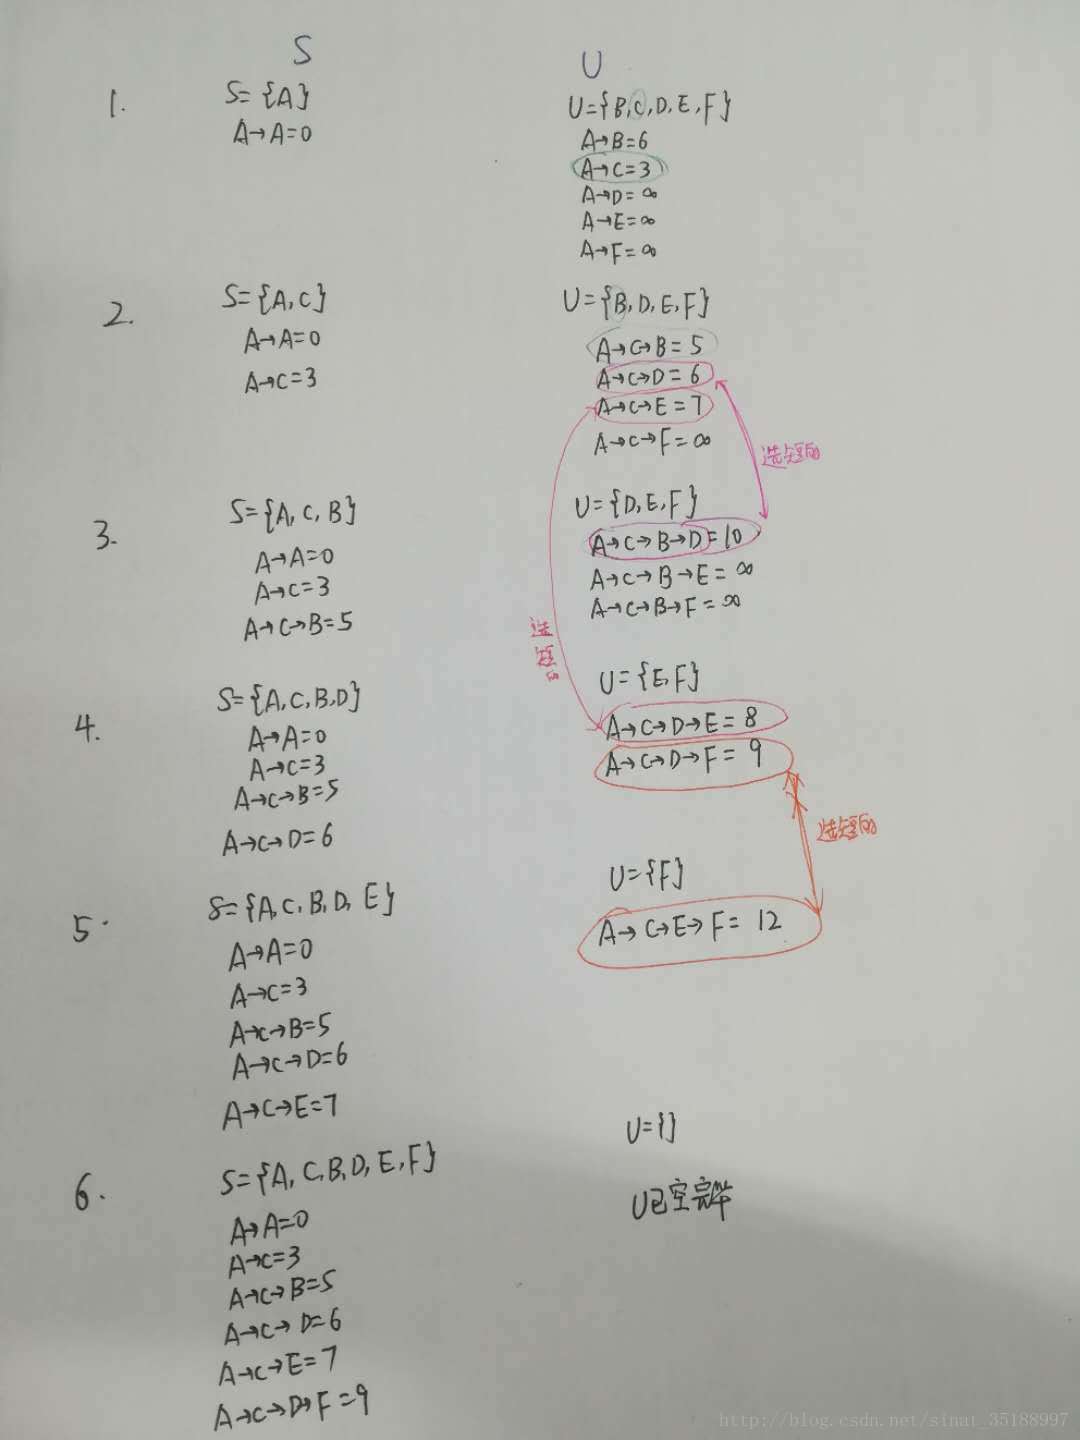 S U
1. S={A} U={B,C,D,E,F}
A→A=0 A→B=6
A→C=3
A→D=∞
A→E=∞
A→F=∞
2. S={A,C} U={B,D,E,F}
A→A=0 A→C→B=5
A→C=3 A→C→D=6
A→C→E=7
A→C→F=∞
选短的
3. S={A,C,B} U={D,E,F}
A→A=0 A→C→B→D=10
A→C=3 A→C→B→E=∞
A→C→B=5 A→C→B→F=∞
选短的
4. S={A,C,B,D} U={E,F}
A→A=0 A→C→D→E=8
A→C=3 A→C→D→F=9
A→C→B=5
A→C→D=6
选短的
5. S={A,C,B,D,E} U={F}
A→A=0 A→C→E→F=12
A→C=3
A→C→B=5
A→C→D=6
A→C→E=7
6. S={A,C,B,D,E,F} U={}
A→A=0 U已空完毕
A→C=3
A→C→B=5
A→C→D=6
A→C→E=7
A→C→D→F=9
http://blog.csdn.net/sinat_35188997